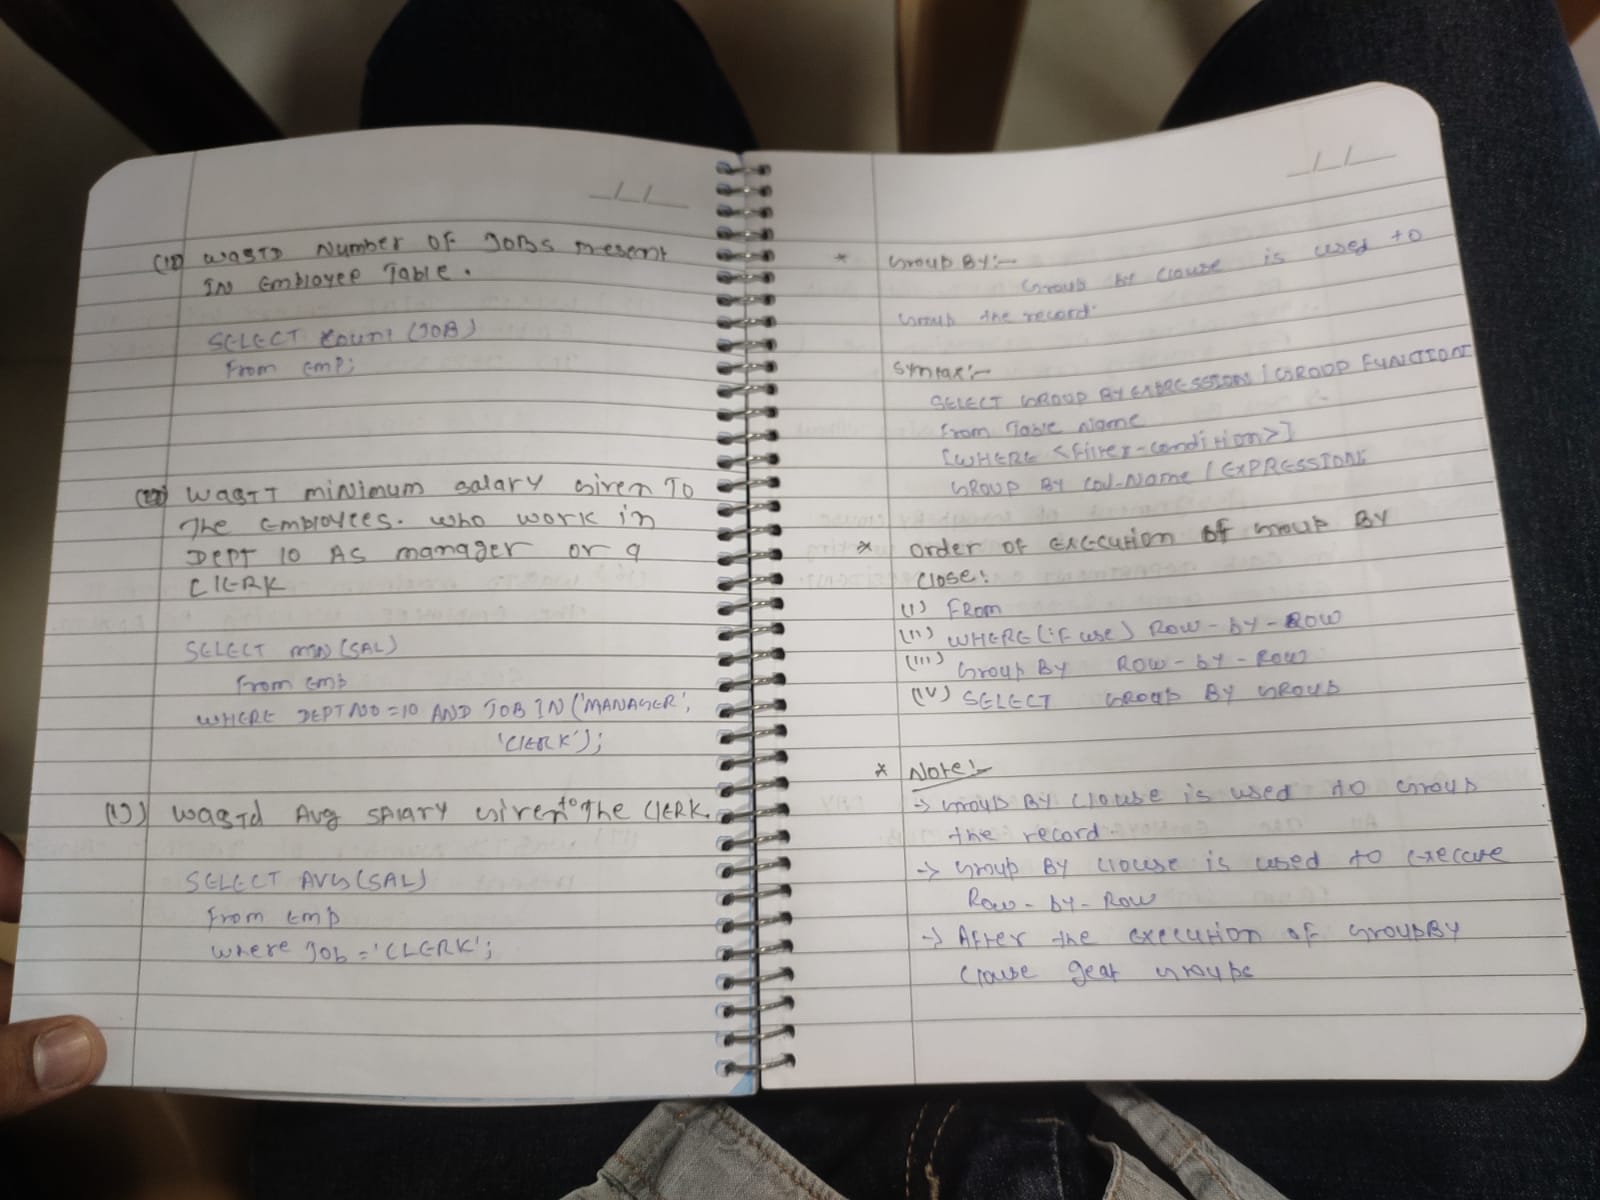 WQSTD Number OF JOBS Present
IN Employee Table.
SELECT Count (JOB)
From Emp;
WQSTT minimum salary Given To
The Employees. who work in
DEPT 10 AS manager or a
ClERK
SELECT MIN (SAL)
From Emp
WHERE DEPTNO =10 AND JOB IN ('MANAGER',
'ClERK');
WQSTd Avg SAlARY Given to The ClERK.
SELECT AVG (SAL)
From Emp
Where Job = 'CLERK';
* Group BY:-
Group By Clause is used to
Group the record.
Syntax:-
SELECT GROUP BY EXPRESSION / GROUP FUNCTION
From Table Name
[WHERE <Filter-condition>]
GROUP BY Col-Name / EXPRESSION
* Order of Execution of Group BY
Close:
(I) FRom
(II) WHERE (if use) Row-by-Row
(III) Group By Row-by-Row
(IV) SELECT GROUP BY GROUP
* Note:-
-> Group BY Clause is used to Group
the record.
-> Group By Clouse is used to
Row-by-Row
-> After the execution of GroupBY
Clause Groups